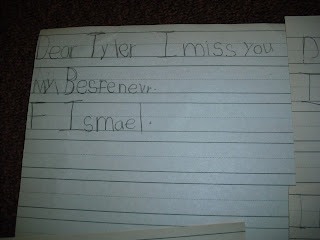 Dear Tyler I miss you
my Besfenevr.
F Ismael.
D
I